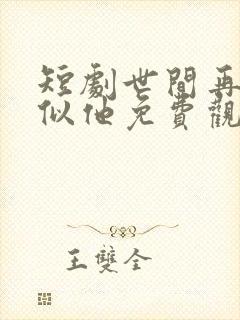 短劇世間再
似他免費觀
王雙全